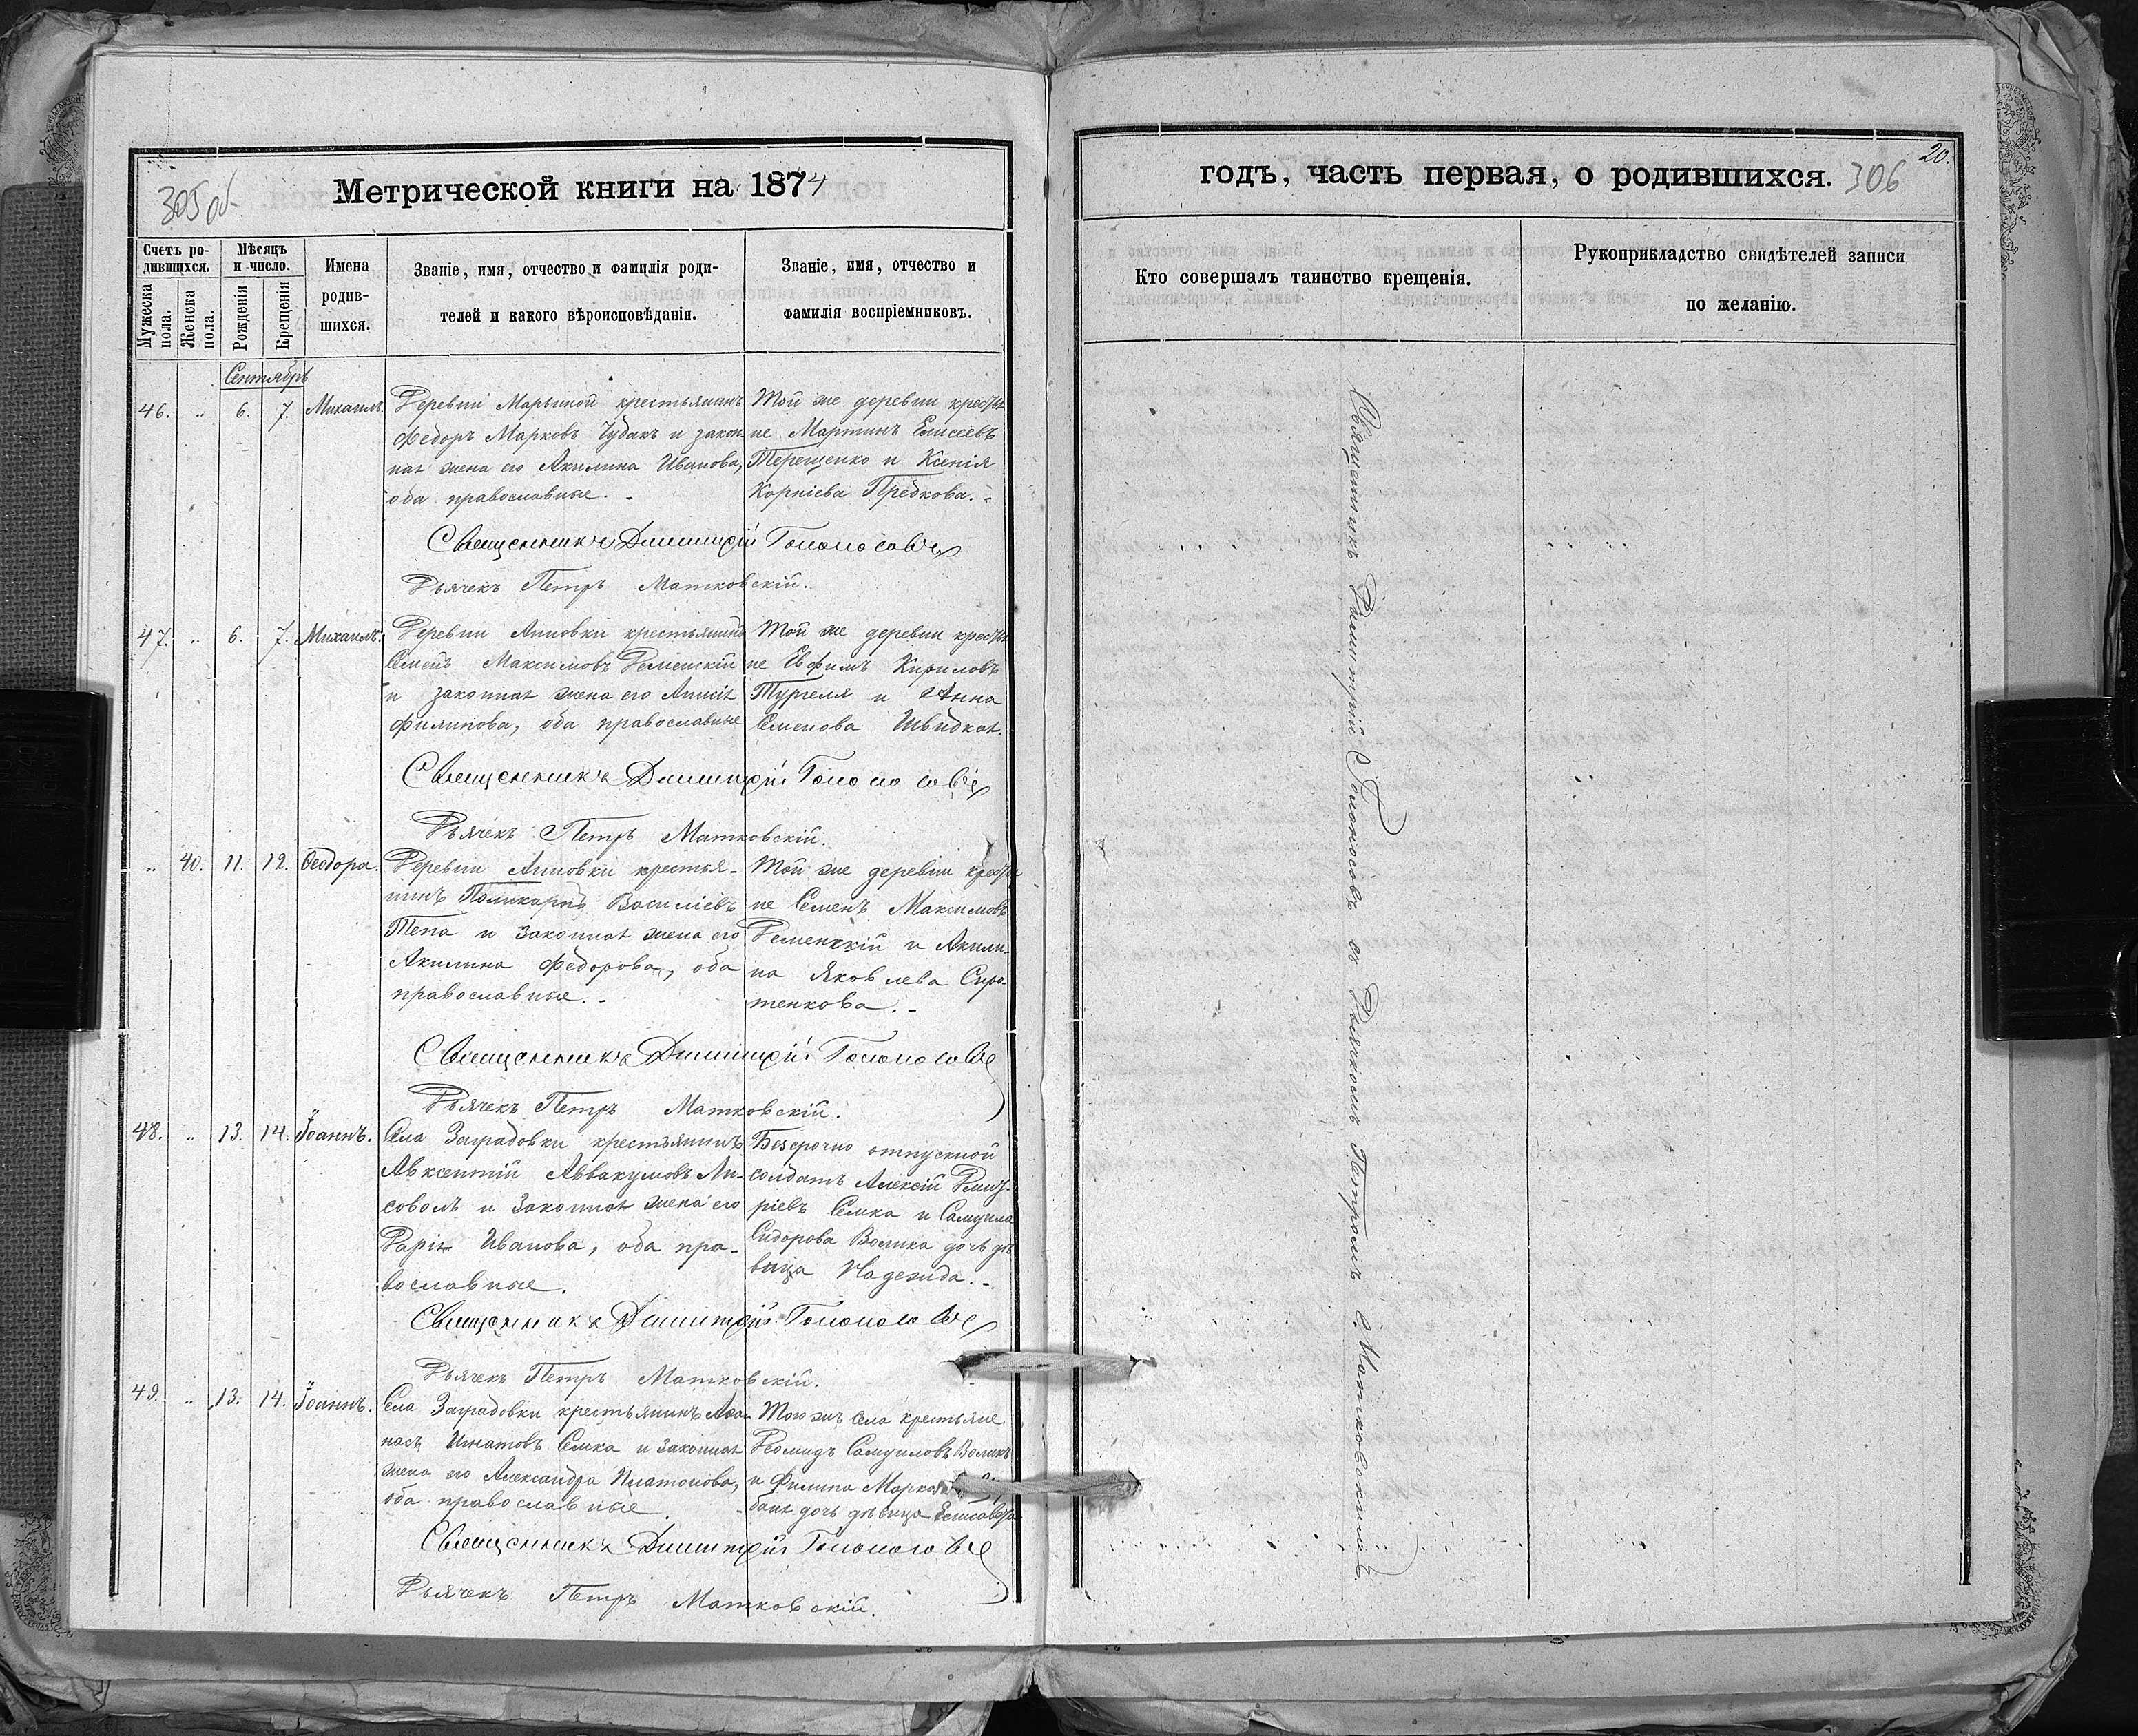 305 об
Метрической книги на 1874
Счетъ ро-
дившихся.
Мужеска
пола.
Женска
пола.
Мѣсяцъ
и число.
Рожденія
Крещенія
Имена
родив-
шихся.
Званіе, имя, отчество и фамилія роди-
телей и какого вѣроисповѣданія.
Званіе, имя, отчество и
фамилія воспріемниковъ.
Сентябрь
46. „ 6. 7. Михаилъ.
Деревни Марьиной крестьянинъ
Федоръ Марковъ Чудакъ и закон-
ная жена его Акилина Иванова,
оба православные. -
Той же деревни крестья
не Мартинъ Елисеевъ
Терещенко и Ксенія
Корніева Предкова. -
Священникъ Димитрій Голоносовъ
Дьячекъ Петръ Матковскій.
47. „ 6. 7. Михаилъ.
Деревни Анновки крестьянинъ
Семенъ Максимовъ Деменскій
и законная жена его Анисія
Филипова, оба православные
Той же деревни крестья
не Евфимъ Кириловъ
Тургеля и Анна
Семенова Швидкая.
Священникъ Димитрій Голоносовъ
Дьячекъ Петръ Матковскій.
„ 40. 11. 12. Феодора.
Деревни Анновки крестья-
нинъ Поликарпъ Василіевъ
Тепа и законная жена его
Акилина Федорова, оба
православные. -
Той же деревни крестья
не Семенъ Максимовъ
Деменскій и Акили-
на Яковлева Сиро-
тенкова. -
Священникъ Димитрій Голоносовъ
Дьячекъ Петръ Матковскій.
48. „ 13. 14. Іоаннъ.
Села Заградовки крестьянинъ
Авксентій Аввакумовъ Ли-
соволъ и законная жена его
Дарія Иванова, оба пра-
вославные.
Безсрочно отпускной
солдатъ Алексій Дмит-
ріевъ Семка и Самуила
Сидорова Волика дочь дѣ
вица Надежда. -
Священникъ Димитрій Голоносовъ
Дьячекъ Петръ Матковскій.
49. „ 13. 14. Іоаннъ.
Села Заградовки крестьянинъ Афа-
насъ Игнатовъ Семка и законная
жена его Александра Платонова,
оба православные.
Того жъ села крестьяне
Деомидъ Самуиловъ Воликъ
и Филипа Марка
баня дочь дѣвица Елисавета
Священникъ Димитрій Голоносовъ
Дьячекъ Петръ Матковскій.
20.
годъ, часть первая, о родившихся. 306
Кто совершалъ таинство крещенія.
Рукоприкладство свидѣтелей записи
по желанію.
Священникъ Димитрій Голоносовъ съ Дьячкомъ Петромъ Матковскимъ.